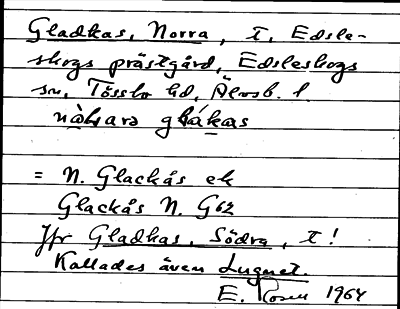 Gladkas, Norra, t, Edsle-
skogs prästgård, Edsleskogs
sn, Tössbo hd, Älvsb. l.
glákas
= N. Glackås ek
Glackås N. G62
Jfr Gladkas, Södra, t!
Kallades även Lugnet.
E. Rosén 1964